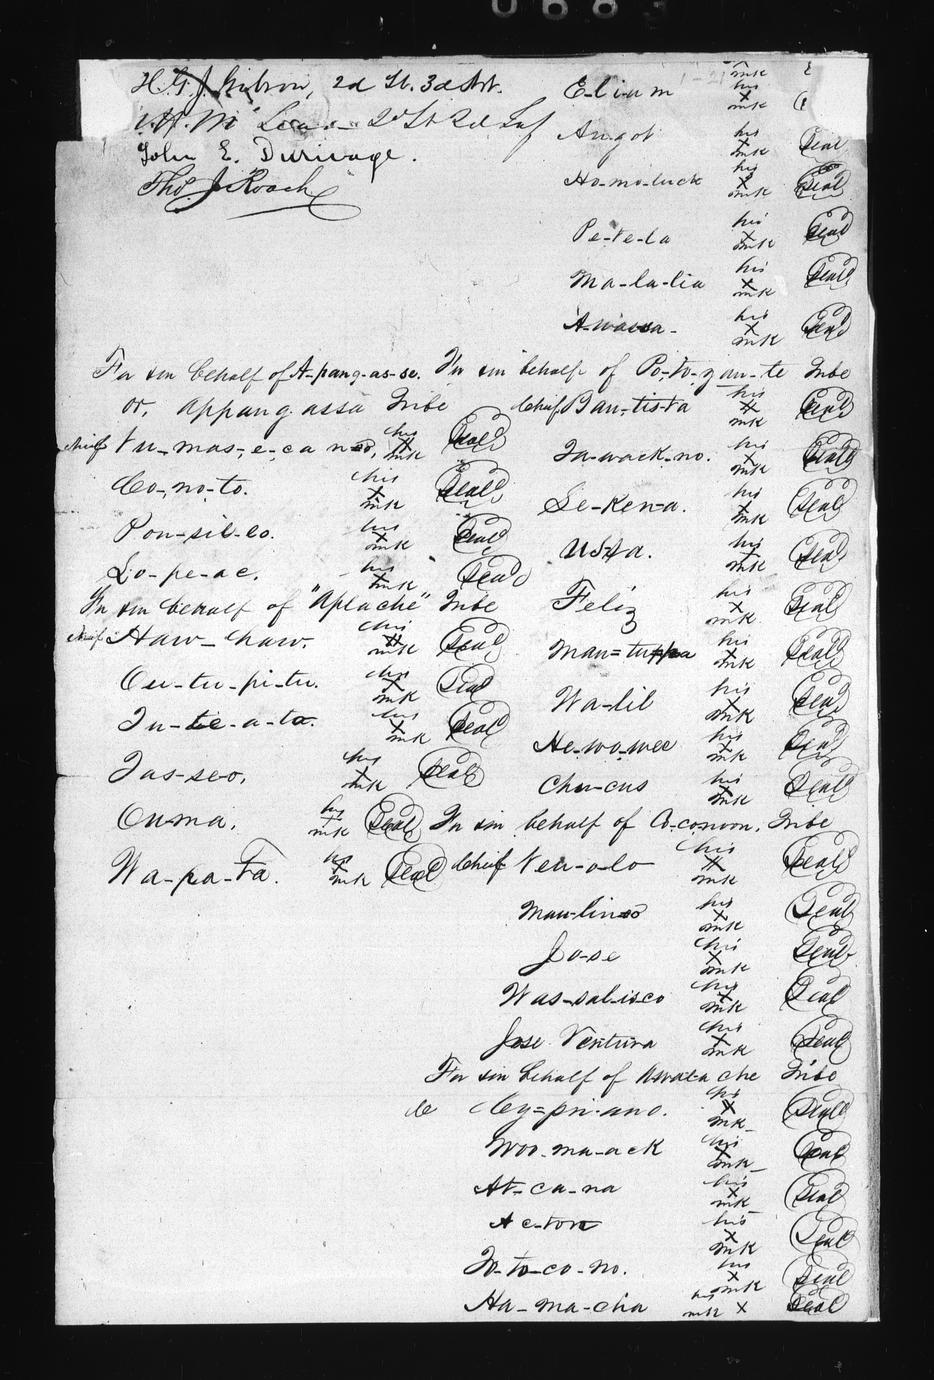 0663
H. G. J. Gibson, 2d Lt. 3d Art.
2d Lt 2d Inf
John E. Durivage.
Thos. J. Roach
mk
E-li-um his X mk
An-got his X mk Seal
Ho-mo-luck his X mk Seal
Pe-te-la his X mk Seal
Ma-la-lia his X mk Seal
A-wassa- his X mk Seal
For & in behalf of A-pang-as-se.
or, appang-assa Tribe
chief Nu-mas-e-ca no, his X mk Seal
Co-no-to. his X mk Seal
Pon-sil-lo. his X mk Seal
Lo-pe-ac. his X mk Seal
For & in behalf of "Aplache" Tribe
chief Haw-haw. his X mk Seal
Ou-tu-pi-tu. his X mk Seal
Tu-tie-a-ta. his X mk Seal
Tas-se-o. his X mk Seal
Ou-ma. his X mk Seal
Wa-pa-Ta. his X mk Seal
For & in behalf of Po-to-yan-te Tribe
chief Bau-tis-ta his X mk Seal
La-wack-no. his X mk Seal
Se-ken-a. his X mk Seal
his X mk Seal
Feliz his X mk Seal
Man=tuppa his X mk Seal
Wa-lil his X mk Seal
He-wo-wee his X mk Seal
Chu-cus his X mk Seal
For & in behalf of Co-conoon. Tribe
chief Nen-o-lo his X mk Seal
Mau-lin-o his X mk Seal
Jo-se his X mk Seal
Was-sal-is-co his X mk Seal
Jose Ventura his X mk Seal
For & in behalf of Awala che Tribe
Cy=pri-ano. his X mk Seal
Woo-ma-ack his X mk Seal
At-ca-na his X mk Seal
Ac-ton his X mk Seal
To-to-co-no. his X mk Seal
Ha-ma-cha his X mk Seal